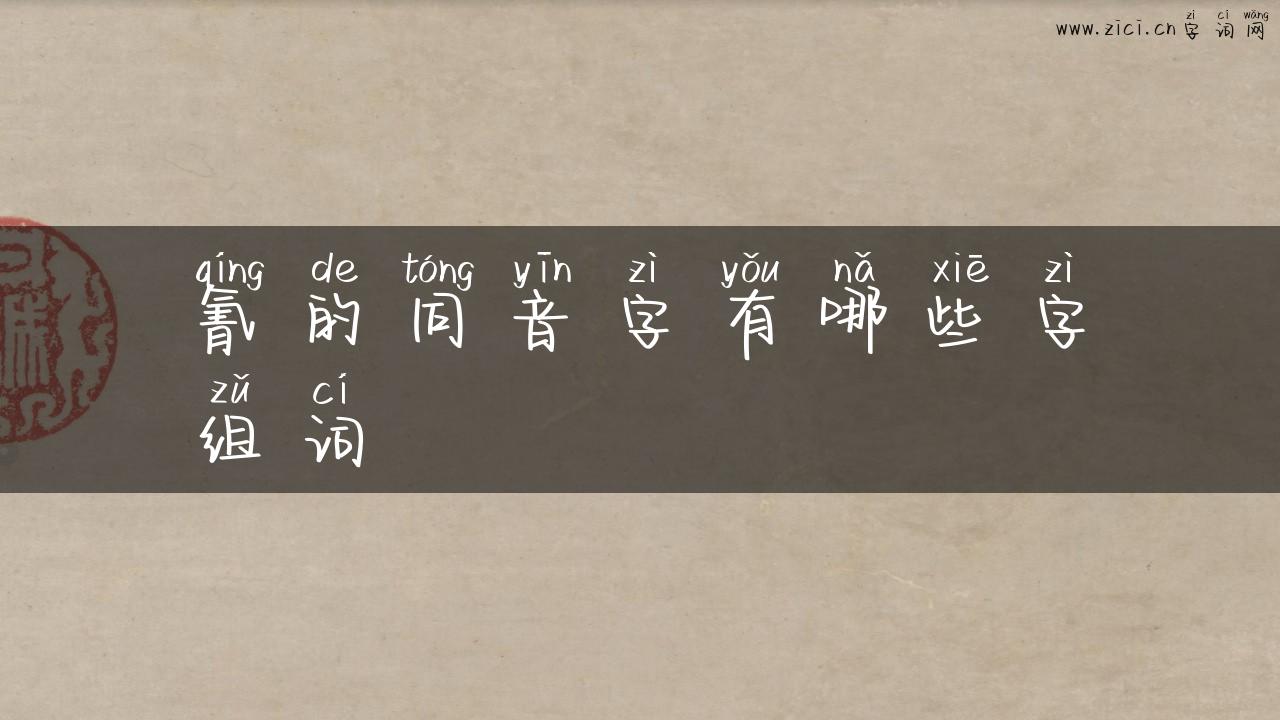 www.zici.cn 字词网
zì cí wǎng
qíng de tóng yīn zì yǒu nǎ xiē zì
氰的同音字有哪些字
zǔ cí
组词